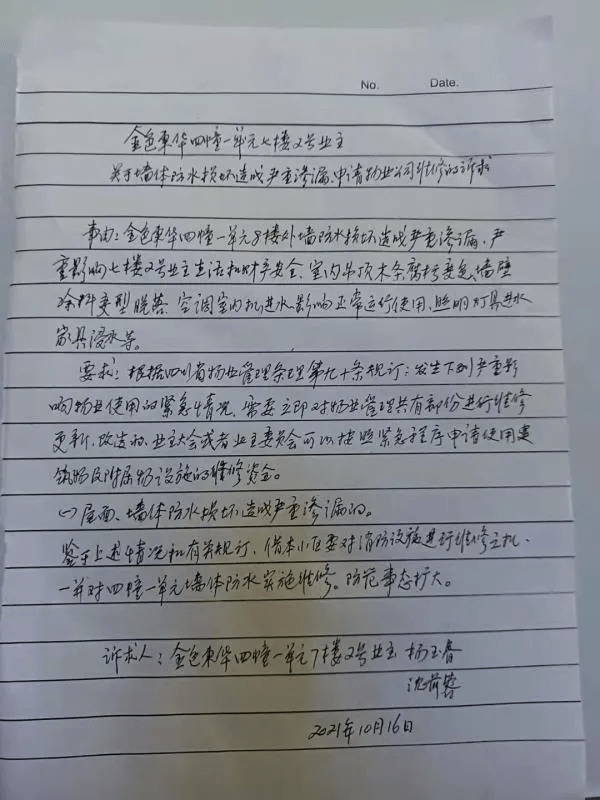 No. Date.
金色东华四幢一单元七楼2号业主
关于墙体防水损坏造成严重渗漏、申请物业公司维修的诉求
事由：金色东华四幢一单元8楼外墙防水损坏造成严重渗漏，严
重影响七楼2号业主生活和财产安全、室内吊顶木条腐朽变色、墙壁
涂料变型脱落、空调室内机进水影响正常运行使用、照明灯具进水
家具浸水等。
要求：根据四川省物业管理条理第九十条规订：发生下列严重影
响物业使用的紧急情况、需要立即对物业管理共有部份进行维修
更新、改造的、业主大会或者业主委员会可以按照紧急程序申请使用建
筑物及附属物设施的维修资金。
(一)屋面、墙体防水损坏造成严重渗漏的。
鉴于上述情况和有关规订、借本小区要对消防设施进行维修之机、
一并对四幢一单元墙体防水实施维修。防范事态扩大。
诉求人：金色东华四幢一单元7楼2号业主 杨玉春
2021年10月16日